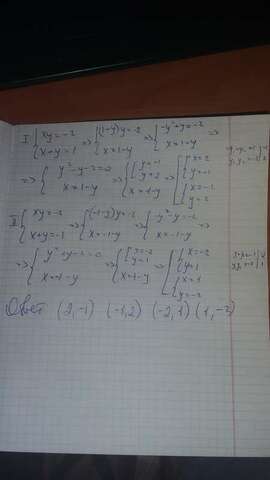 I { xy = -2 x+y = 1 => { (1-y)y = -2 x = 1-y => { -y² + y = -2 x = 1-y =>
=> { y² - y - 2 = 0 x = 1-y => { [ y = -1 y = 2 x = 1-y => [ { x = 2 y = -1 { x = -1 y = 2
II { xy = -2 x+y = -1 => { (-1-y)y = -2 x = -1-y => { -y² - y = -2 x = -1-y
=> { y² + y - 2 = 0 x = -1-y => { [ y = -2 y = 1 x = -1-y => [ { x = -2 y = 1 { x = 1 y = -2
Ответ (2,-1) (-1,2) (-2,1) (1,-2)